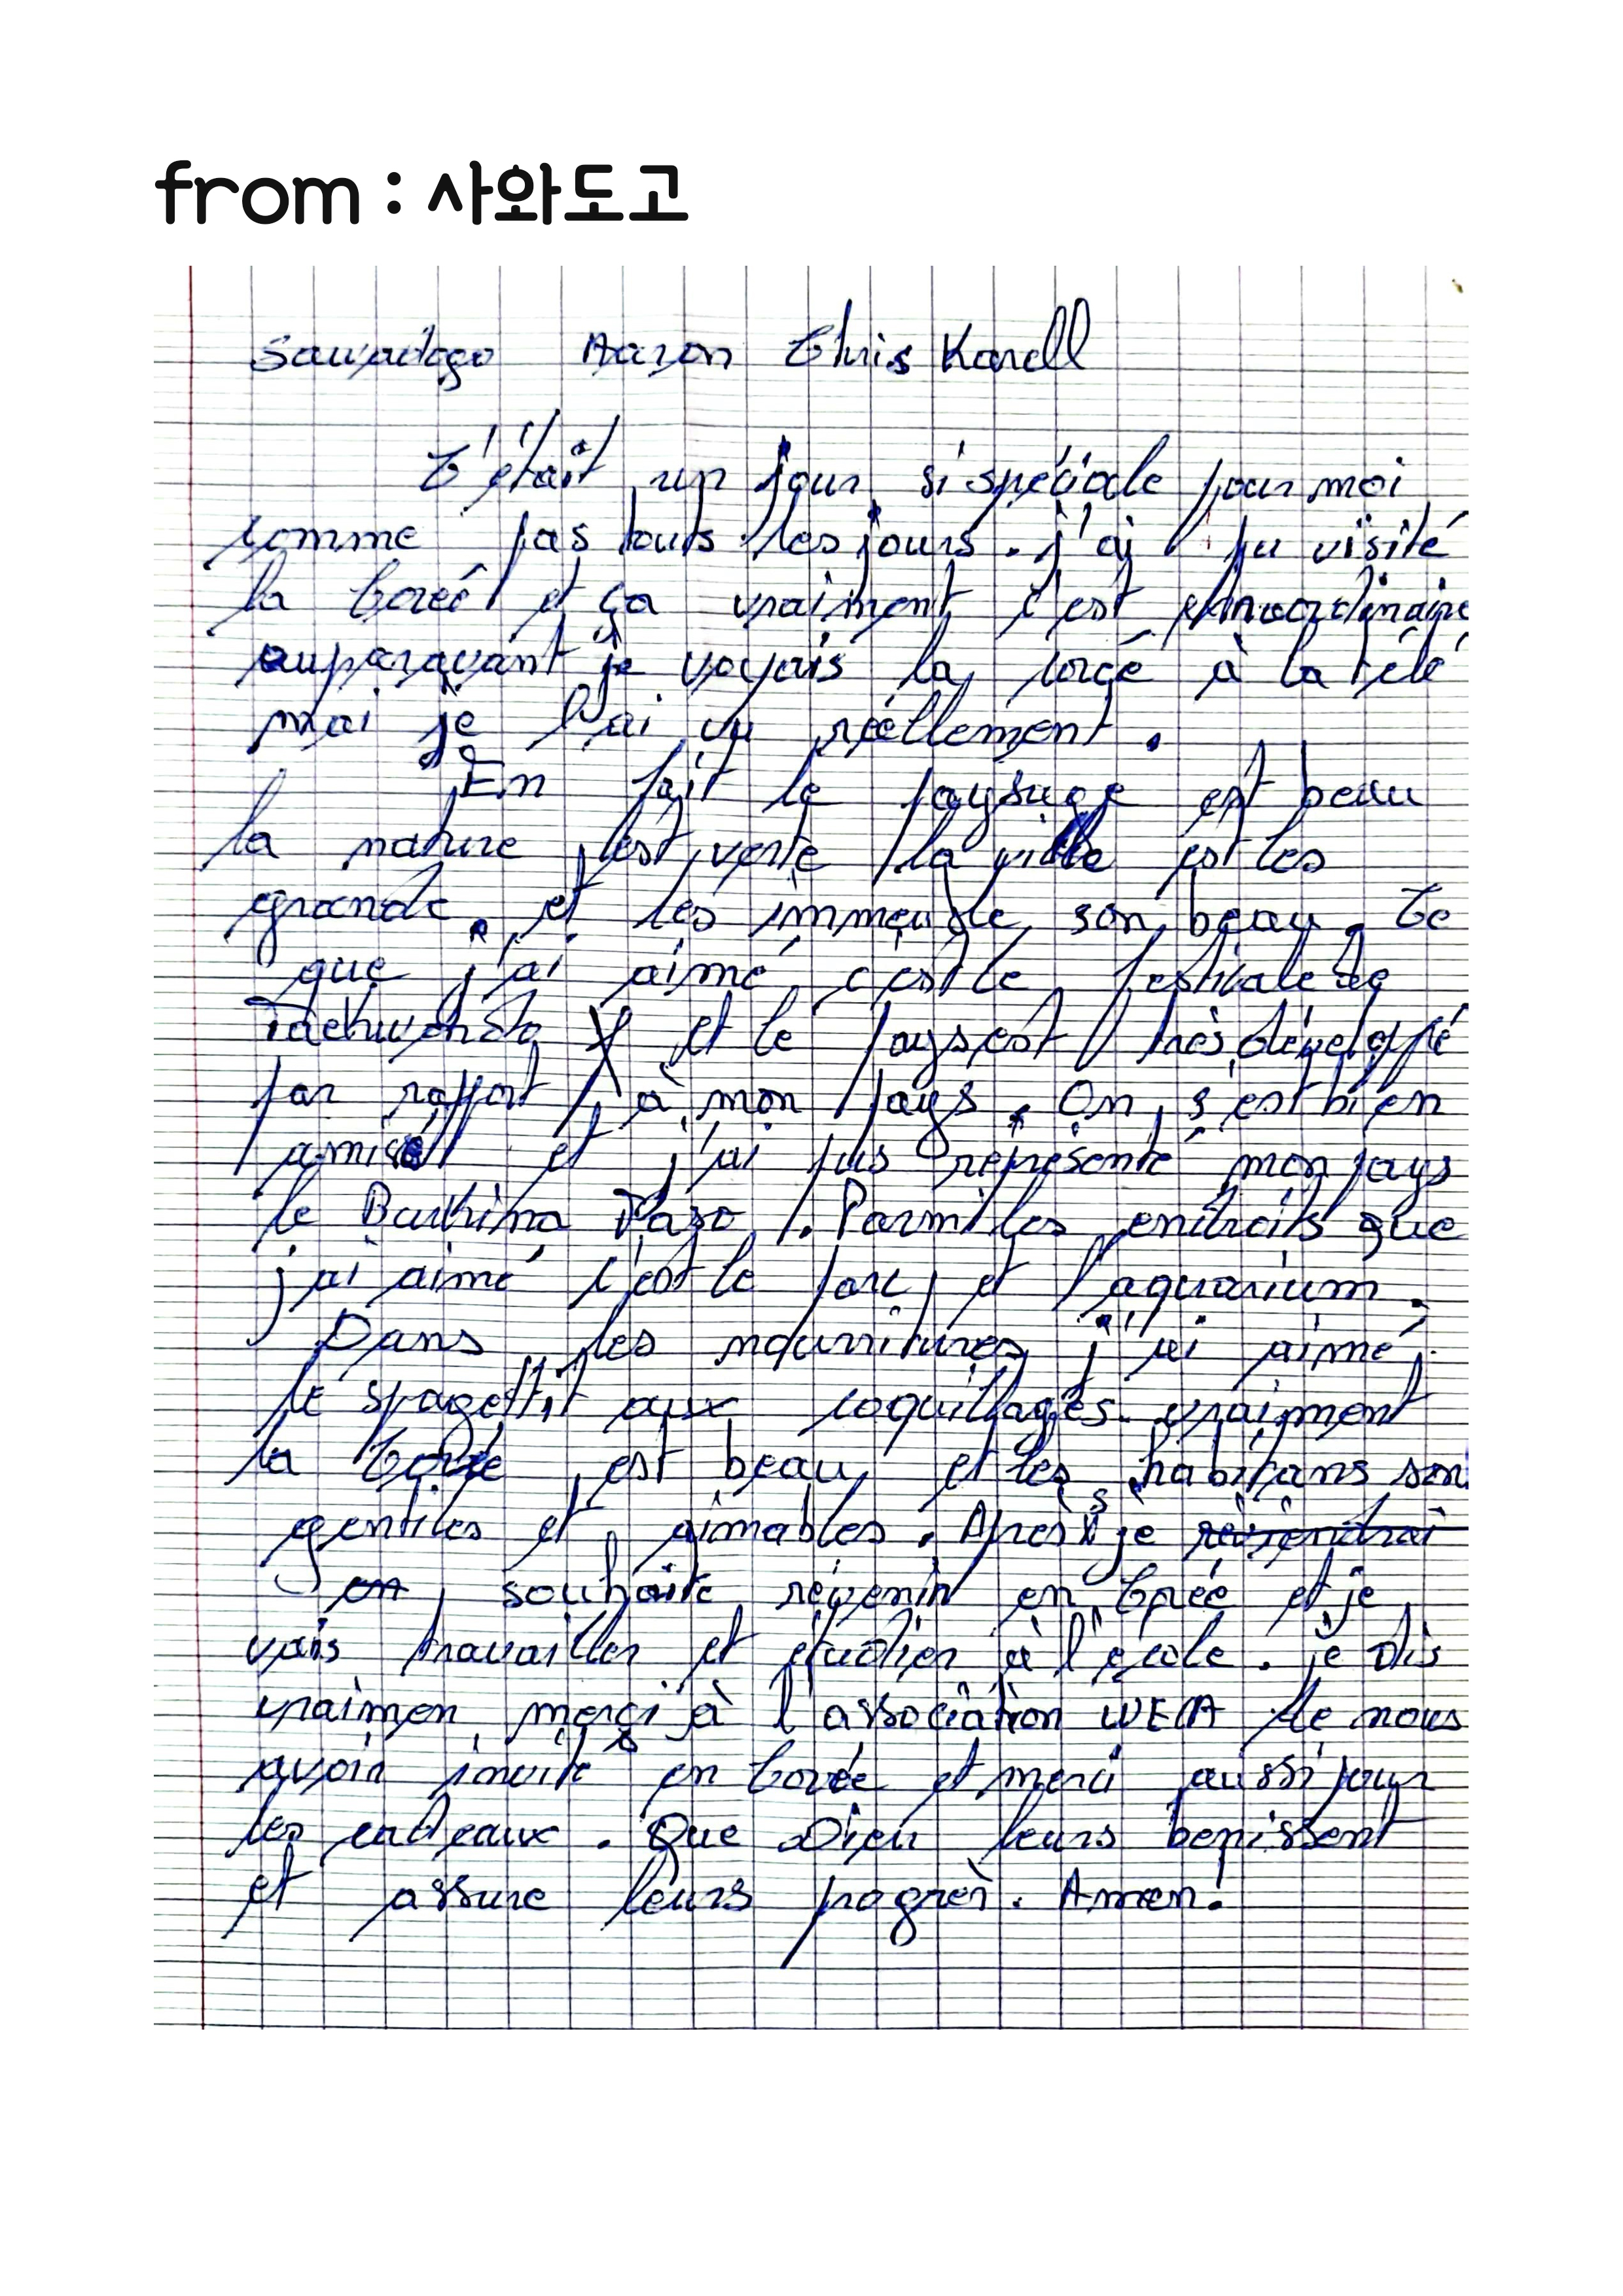 from : 사와도고
Sawadogo Aaron Chris Karell
C'était un jour si spéciale pour moi
comme pas touts les jours. j'ai pu visité
la Coreé et ça vraiment c'est extraordinaire
auparavant je voyais la corée à la télé
mai je l'ai vu réellement.
En fait le paysage est beau
la nature est verte la ville est les
grande. et les immeuble son beau. Ce
que j'ai aimé c'est le festivale de
Taekwondo et le pays est très développé
par rapport à mon pays. On s'est bien
amisé et j'ai pus représenté mon pays
le Burkina Faso. Parmi les endroits que
j'ai aimé c'est le parc et l'aquarium.
Dans les nourritures j'ai aimé
le spagetti aux coquillages. vraiment
la Corée est beau et les habitans son
gentiles et aimables. Après je reviendrai
en souhaite revenir en Corée et je
vais travailler et étudier à l'école. je dis
vraimen merci à l'association WEA de nous
avoir invité en Corée et merci aussi pour
les cadeaux. Que Dieu leurs benissent
et assure leurs progrès. Amen!